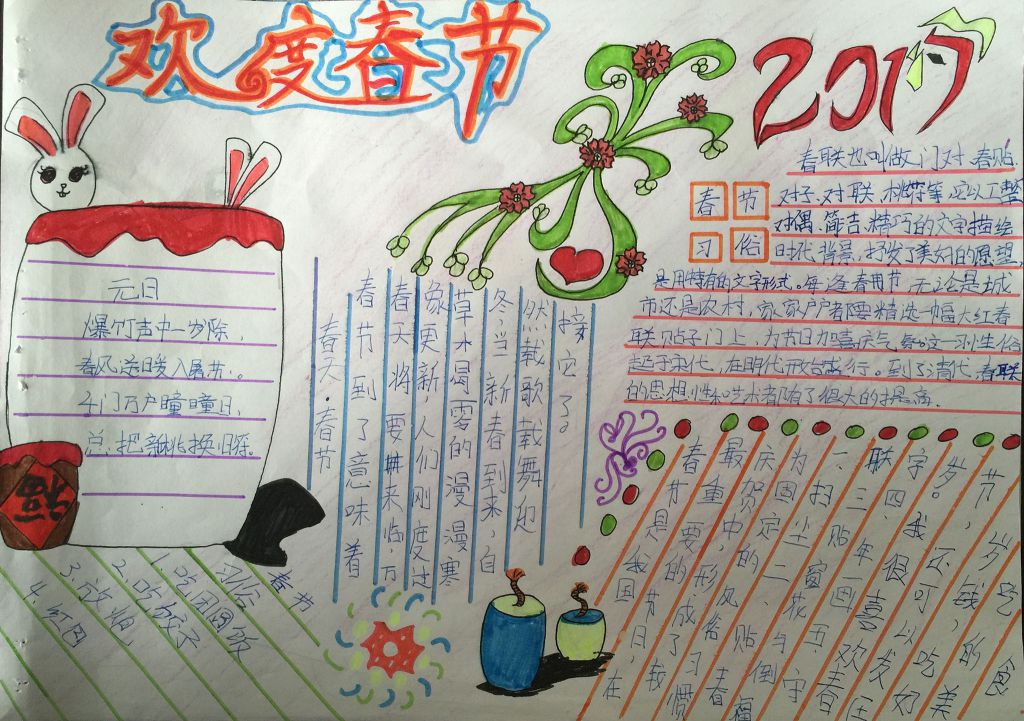 欢度春节
2017
春联也叫做门对、春贴、
春节
习俗
对子、对联、桃符等,它以工整
对偶、简吉、精巧的文字描绘
时代背景,抒发了美好的愿望,
是用特有的文字形式。每逢春节,无论是城
市还是农村,家家户户都要精选一幅大红春
联贴子门上,为节日加喜庆气
起于宋代,在明代开始盛行。到了清代,春联
的思想性和艺术都有了很大的提高。
元日
爆竹声中一岁除,
春风送日暖入屠苏。
千门万户曈曈日,
总把新桃换旧符
福
春天·春节
春节到了意味着
春天将要来临,万
象更新,人们刚度过
草木凋零的漫漫寒
冬,当新春到来,自
然载歌载舞迎
接它了。
春节是我国
最重要的节日,在
庆贺中,形成了较
为固定的风俗习惯
一、扫尘二、贴春
联三、贴窗花与倒福
字四、年画五、守
岁。我很喜欢春
节,还可以发压
岁钱,可以吃好
吃的美
食
春节
习俗
1.吃团圆饭
2.吃饺子
3.放烟
4.红包